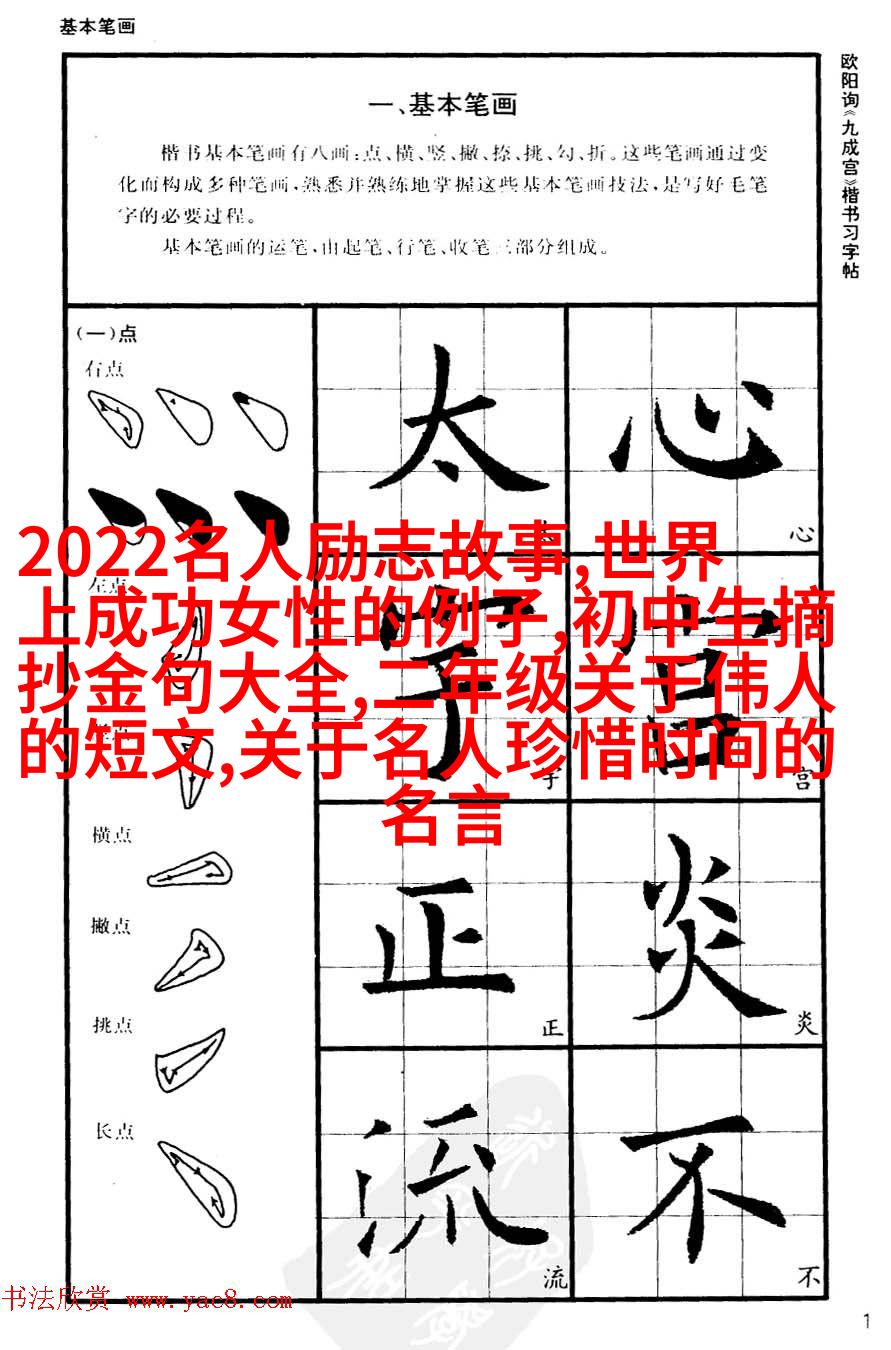 基本笔画
欧阳询《九成宫》楷书习字帖
一、基本笔画
楷书基本笔画有八画:点、横、竖、撇、捺、挑、勾、折。这些笔画通过变
化而构成多种笔画,熟悉并熟练地掌握这些基本笔画技法,是写好毛笔
字的必要过程。
基本笔画的运笔,由起笔、行笔、收笔三部分组成。
(一)点
右点
太
心
心
2022名人励志故事,世界
上成功女性的例子,初中生摘
抄金句大全,二年级关于伟人
的短文,关于名人珍惜时间的
名言
左点
字
宫
宫
横点
撇点
挑点
长点
正
正
炎
炎
流
流
不
不
书法欣赏 www.yac8.com
1